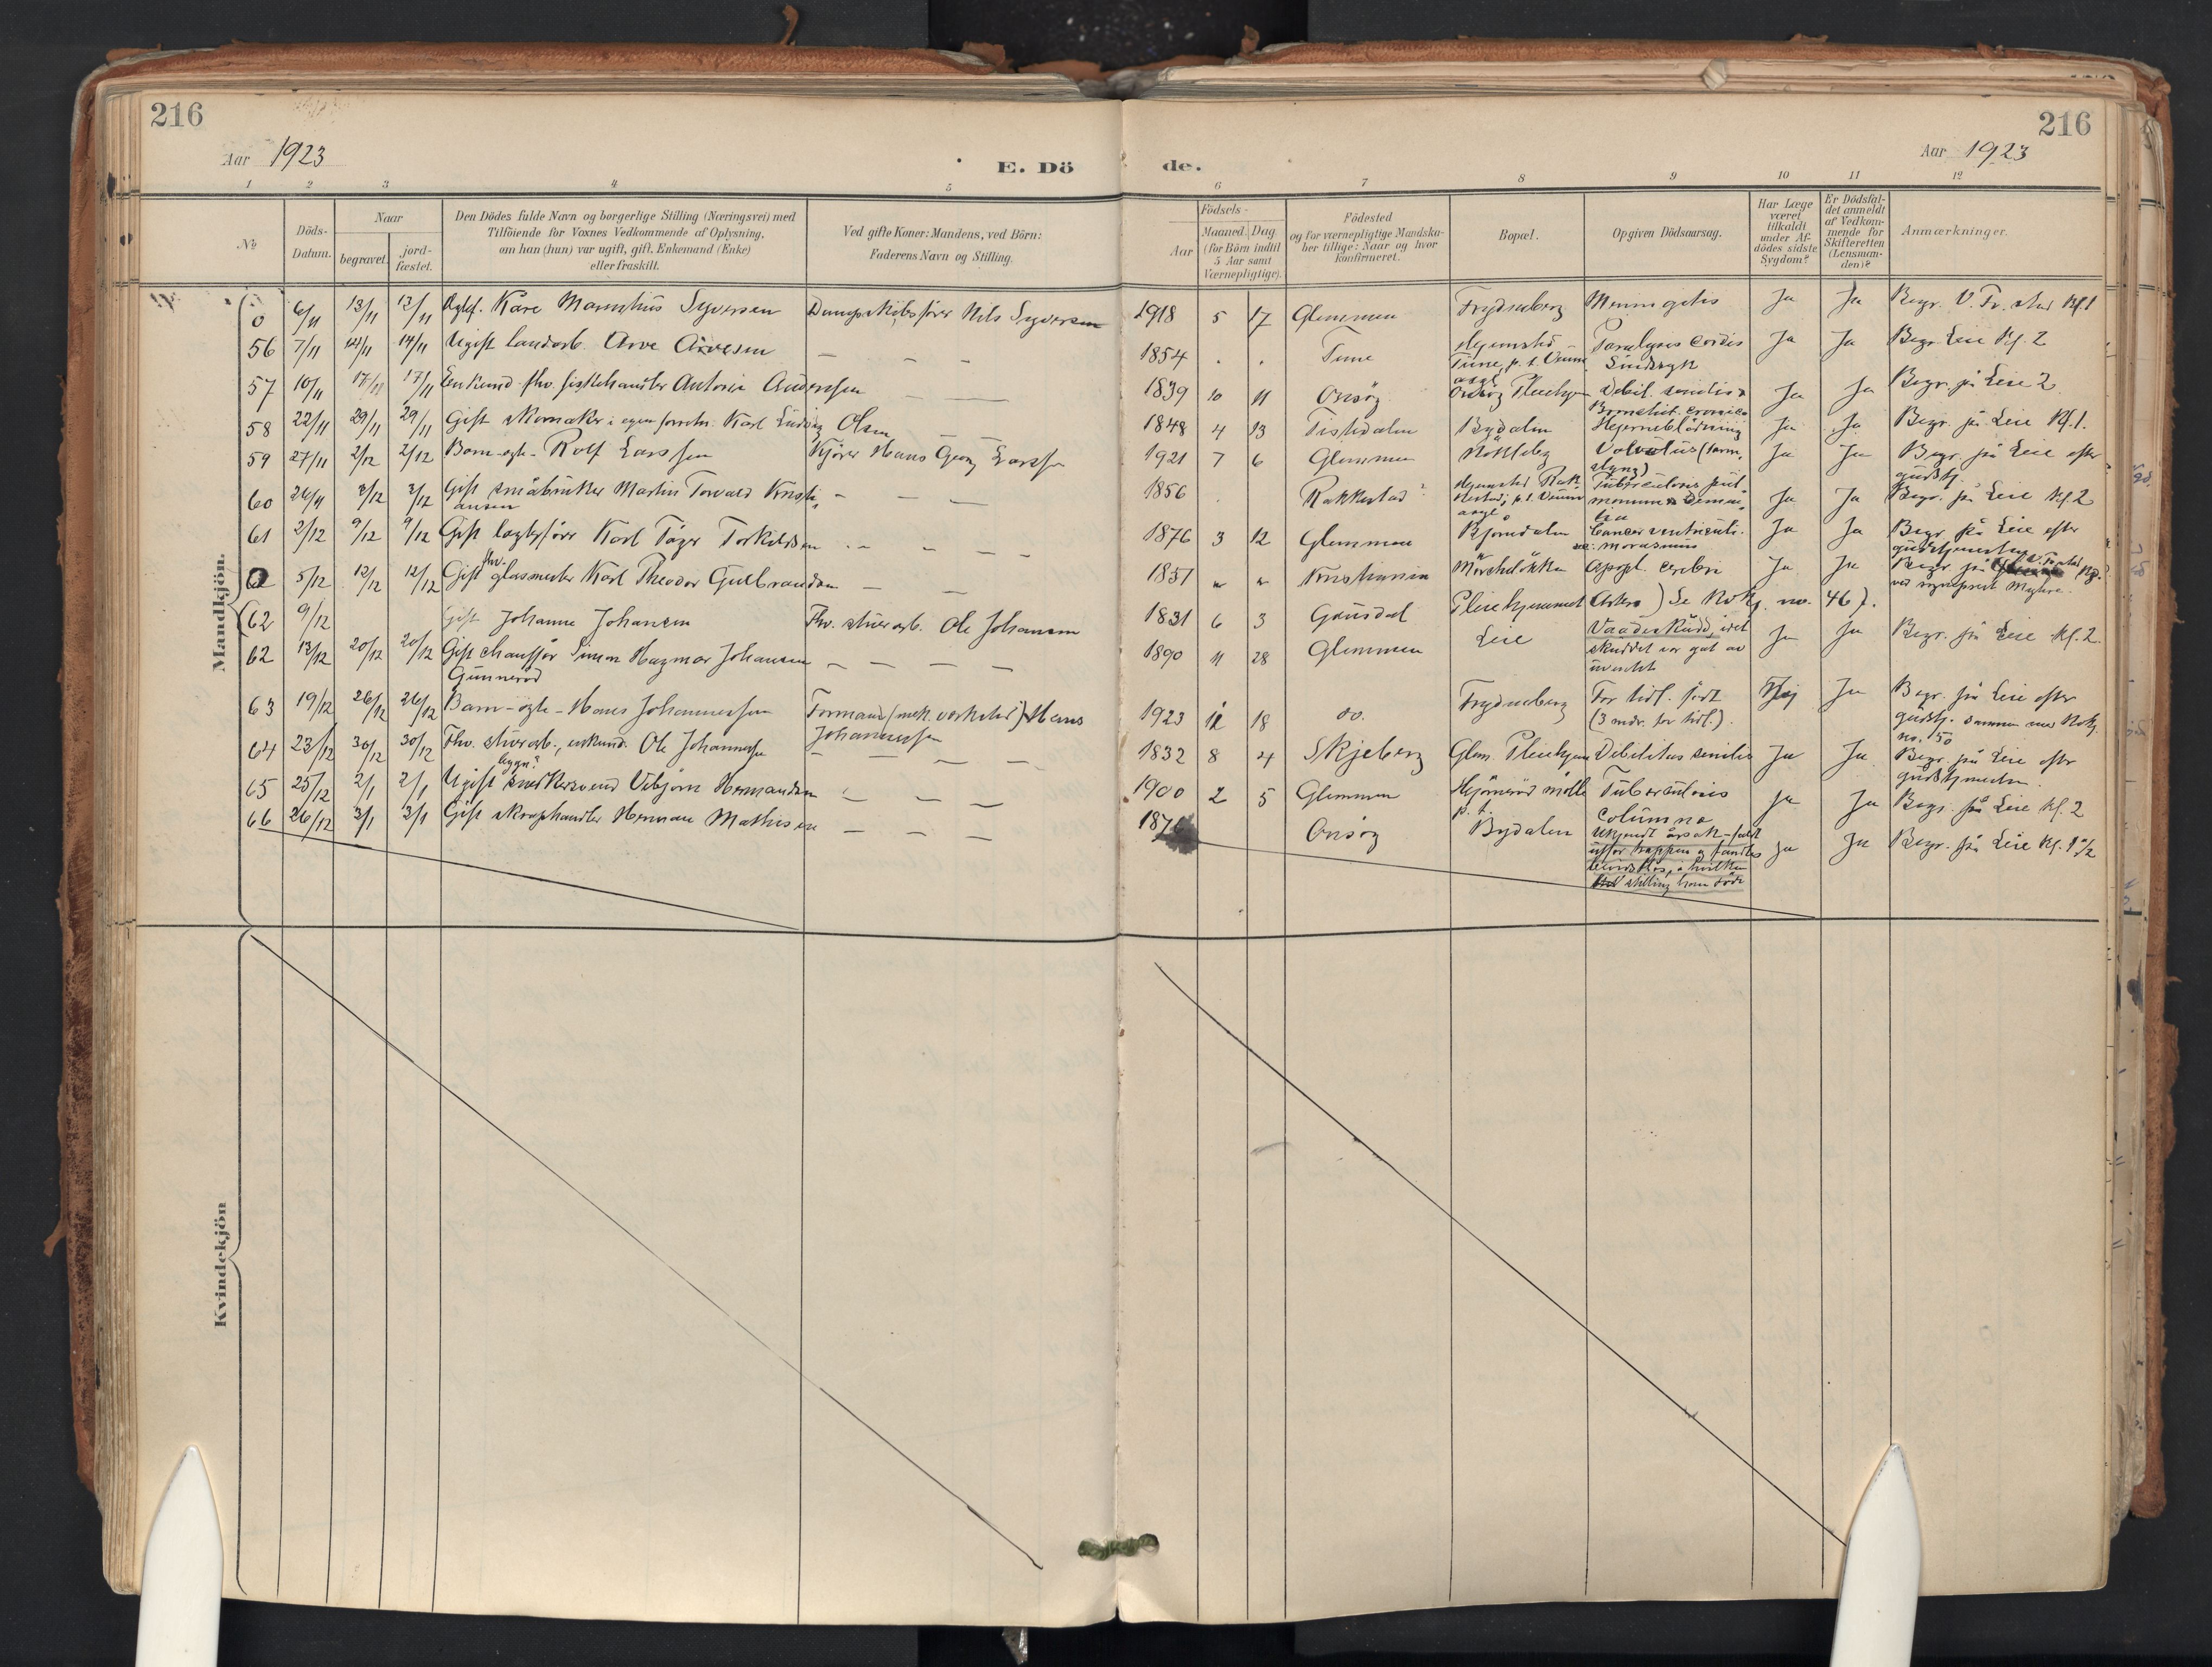 216
216
Aar 1923
Aar 1923
E. Dö de.
1 2 3 4 5 6 7 8 9 10 11 12
No
Döds-Datum.
Naar
begravet.
jord-fæstet.
Den Dödes fulde Navn og borgerlige Stilling (Næringsvei) med
Tilföiende for Voxnes Vedkommende af Oplysning,
om han (hun) var ugift, gift, Enkemand (Enke)
eller fraskilt.
Ved gifte Koner: Mandens, ved Börn:
Faderens Navn og Stilling.
Födsels-
Aar
Maaned. Dag
(for Börn indtil
5 Aar samt
Værnepligtige).
Födested
og for værnepligtige Mandska-
ber tillige: Naar og hvor
Konfirmeret.
Bopæl.
Opgiven Dödsaarsag.
Har Læge
været
tilkaldt
under Af-
dödes sidste
Sygdom?
Er Dödsfal-
det anmeldt
af Vedkom-
mende for
Skifteretten
(Lensman-
den)?
Anmærkninger.
Mandkjön.
0 6/11 13/11 13/11 Kåre Syversen Dampskibsfører Nils Syversen 1918 5 17 Glemmen Frydenberg Meningitis Ja Ja Begr. V. Fr.stad Kl. 1
56 7/11 14/11 14/11 Ugift landarb. Arve Arvesen — — — 1854 . . Tune Hjemsted
Tune, p. t. Veum
asyl Paralysis cordis
Sindssyk Ja Ja Begr. Leie Kl. 2
57 10/11 17/11 17/11 Enkemd. fhv. fiskehandler Anton Anderssen — — 1839 10 11 Onsöy Onsöy Pleiehjem Debil. senilis &
Bronchit. cronica Ja Ja Begr. på Leie 2
58 22/11 29/11 29/11 Gift skomaker i egen forretn. Karl Ludvig Olsen — — 1848 4 13 Tistedalen Bydalen Hjerneblödning Ja Ja Begr. på Leie Kl. 1.
59 27/11 2/12 2/12 Barn-egte- Rolf Larssen Kjörer Hans Georg Larssen 1921 7 6 Glemmen Volvulus (tarm-
slyng) Ja Ja Begr. på Leie efter
gudstj.
60 3/12 3/12 Gift småbruker Martin Torvald Kristi-
ansen — — — 1856 . Rakkestad? Hjemsted Rak-
kestad; p. t. Veum
asyl Tuberculosis pul-
monum & Demen-
tia Ja Ja Begr. på Leie Kl. 2
61 2/12 9/12 9/12 Gift Karl Torkildsen — — — — 1876 3 12 Glemmen Bjørndalen Cancer ventriculi. Ja Ja Begr. på Leie efter
gudstjenesten
5/12 12/12 12/12 Gift fhv. glasmester Karl Theodor Gulbrandsen — — 1851 " " Kristiania Apopl. cerebri Ja Ja Begr. på V. Fr.stad Kg.
ved sogneprest Myhre.
(62 9/12 Gift Johanne Johansen Fhv. stuerarb. Ole Johansen 1831 6 3 Gausdal Pleiehjemmet Se Kvkj. no. 46).
62 13/12 20/12 20/12 Gift chauffør Simen Hagmar Johansen
Gunneröd — — — — 1890 11 28 Glemmen Leie Vaadeskudd, idet
skuddet var gåt av
uventet Ja Ja Begr. på Leie Kl. 2.
63 19/12 26/12 26/12 Barn-egte - Hans Johannessen Formand (mek. verksted) Hans
Johannessen 1923 12 18 do. Frydenberg For tidl. födt
(3 mdr. for tidl.). Nej Ja Begr. på Leie efter
gudstj. sammen med Kvkj.
no. 50
64 23/12 30/12 30/12 Fhv. stuerarb., enkemd. Ole Johannessen — — — — 1832 8 4 Skjeberg Glem. Pleiehjem Debilitas senilis Ja Ja Begr. på Leie efter
gudstjenesten.
65 25/12 2/1 2/1 Ugift snekkersvend Vebjørn Hermansen — — — 1900 2 5 Glemmen Tuberculosis
columna Ja Ja Begr. på Leie Kl. 2
66 26/12 3/1 3/1 Gift skraphandler Herman Mathisen — — — 187 Onsöy p. t.
Bydalen Ukjendt årsak - faldt
utfor trappen & fandtes
bevidstløs, i hvilken
stilling han döde Ja Ja Begr. på Leie Kl. 1 1/2
Kvindekjön